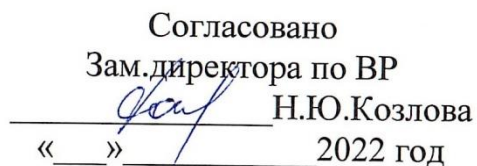 Согласовано
Зам.директора по ВР
____________________Н.Ю.Козлова
«___»______________2022 год